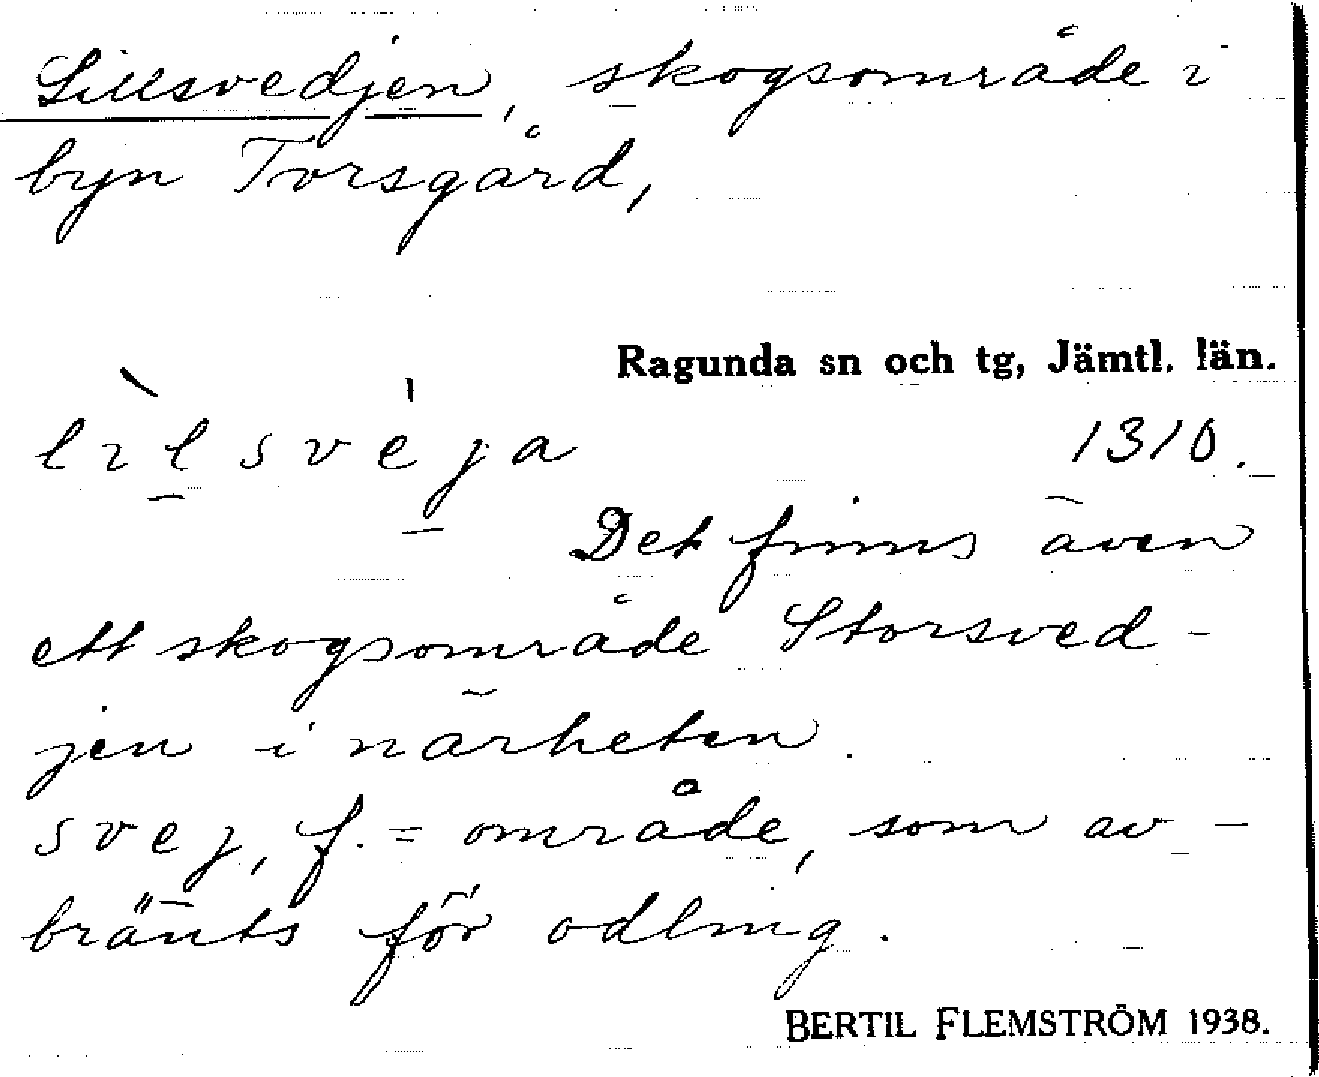 Lillsvedjen, skogsområde i
byn Torsgård,
Ragunda sn och tg, Jämtl. län.
lilsveja 1310.
Det finns även
ett skogsområde Storsved-
jen i närheten.
svej, f. = område, som av-
bränts för odling.
BERTIL FLEMSTRÖM 1938.